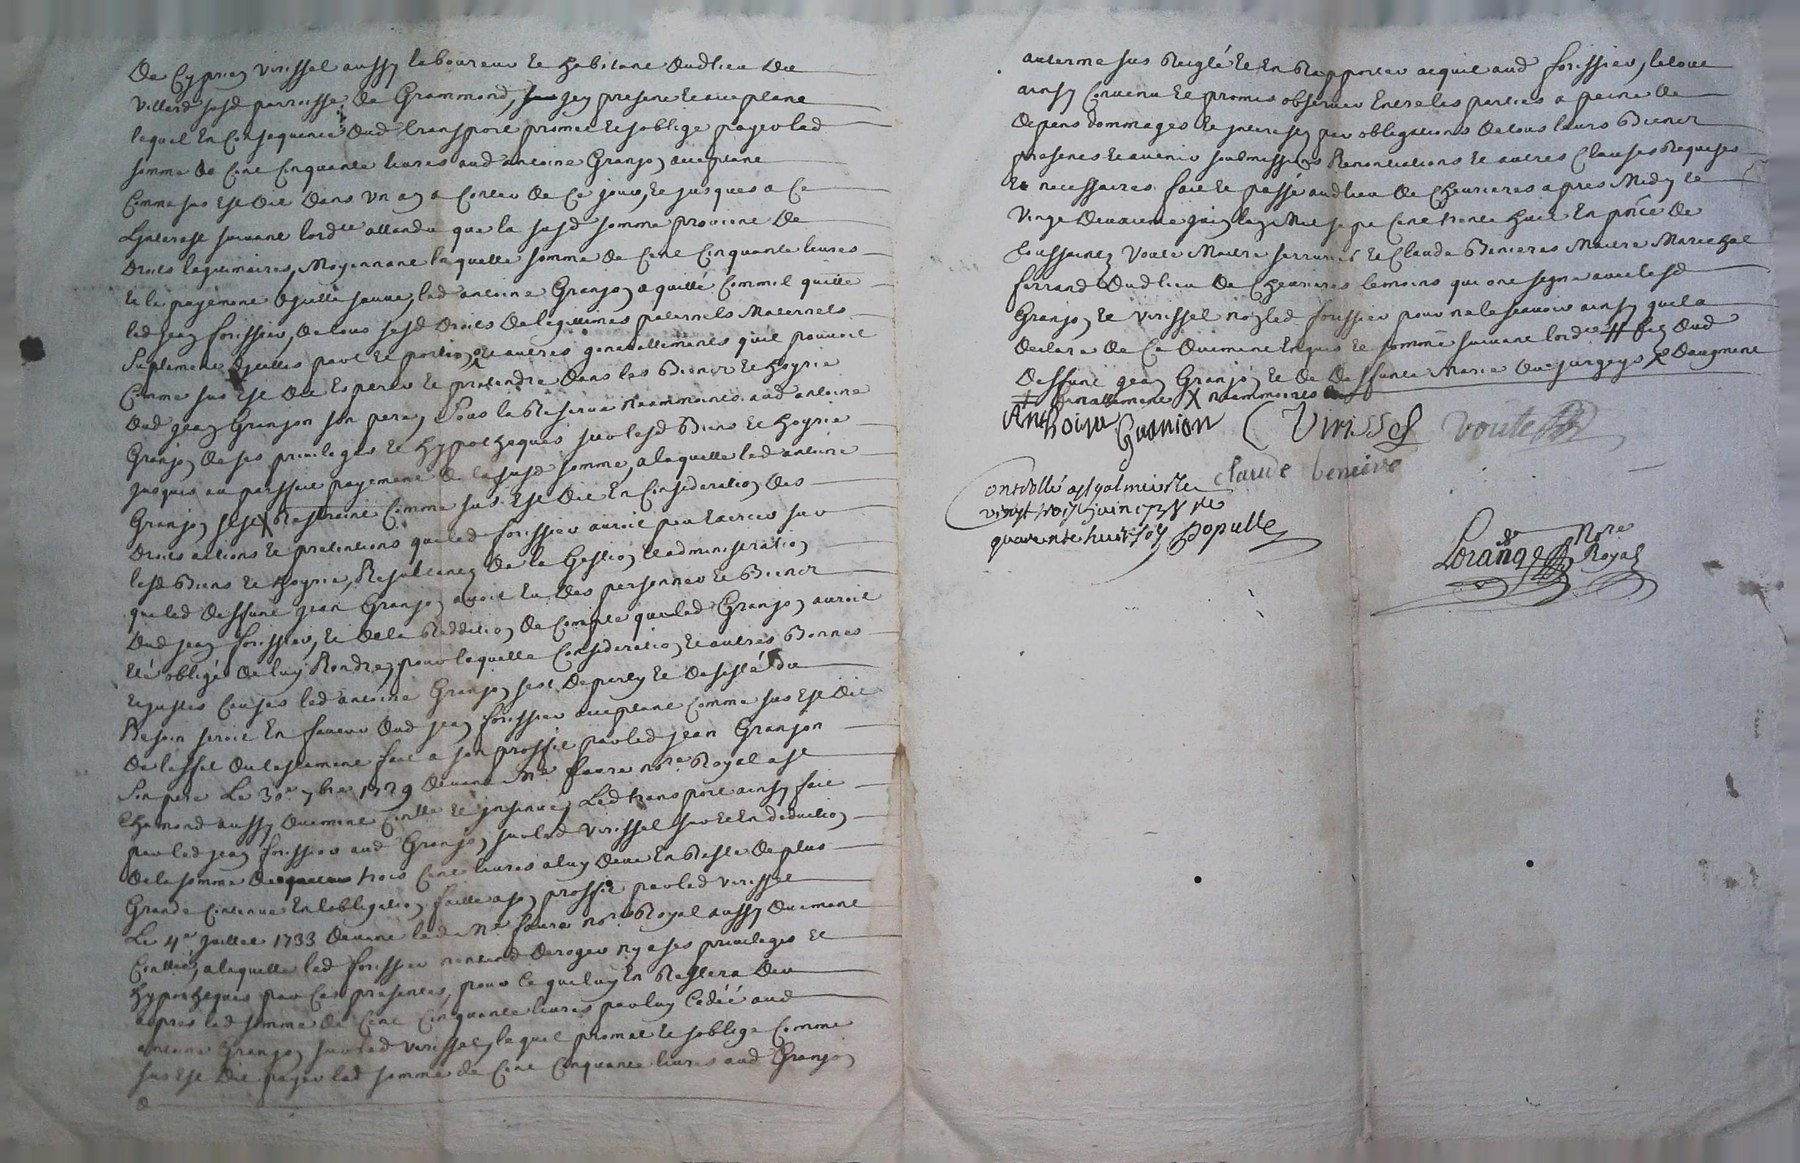 De Cyprien virissel aussy laboureur et habitant dudlieu du
villard susd parroisse de Grammond, jcy present et acceptant
lequel en consequence dud transport promet et soblige payer lad
somme de cent cinquante livres aud antoine Granjon acceptant
comme sus est dit dans un an a conter de ce jour, et jusques a ce
Linterest suivant lordce attandu que la susd somme provient de
droits legitimaires, moyennant laquelle somme de cent cinquante livres
et le payement dycelle sauve, led antoine Granjon a quitté comm'il quitte
led jean forissier, de tous susd droits de legitimes paternels maternels
suplement dyceux part et portion et autres generallements quil pouvoit
comme sus est dit esperer et pretendre dans les biens et hoyrie
dud jean Granjon son pere, sous la reserve neammoins aud antoine
Granjon de ses privileges et hypotheques sur lesd biens et hoyrie
jusques au parfait payement de la susd somme, a laquelle led antoine
Granjon sest restraint comme sus est dit en consideration des
droits actions et pretentions que led forissier auroit peu exercer sur
lesd biens et hoyrie, resultants de la gestion et administration
que led deffunt jean Granjon avoit eu des personnes et biens
dud jean forissier, et de la reddition de compte que led Granjon auroit
eté obligé de luy rendre, pour laquelle consideration et autres bonnes
et justes causes led antoine Granjon sest departy et desisté du
besoin seroit en faveur dud jean forissier acceptant comme sus est dit
de leffet du testament fait a son proffit par led jean Granjon
son pere le 30e 7bre 1729 devant Me faure nore Royal a st
Chamond aussy duement conllé et insinué, led transport ainsy fait
par led jean forissier aud Granjon sur led virissel sur et en deduction
de la somme de trois cent livres a luy deue en reste de plus
grande contenue en lobligation faitte a son proffit par led virissel
Le 4e juillet 1733 devant led Me faure nore Royal aussy duement
conllée, a laquelle led forissier nentend deroger ny a ses privileges et
hypotheques par ces presentes, pour ce que luy en restera deu
apres lad somme de cent cinquante livres par luy cedée aud
antoine Granjon sur led virissel, lequel promet et soblige comme
sus est dit payer lad somme de cent cinquante livres aud Granjon
a
au terme sus reiglé et en rapporter acquit aud forissier, le tout
ainsy convenu et promis observer entre les parties a peine de
depens dommages et interests par obligations de tous leurs biens
presents et avenir soubmissions renontiations et autres clauses requises
et necessaires fait et passé aud lieu de Chevrieres apres midy le
vingt deuxieme juin mil sept cent trente huit en pnce de
toussaint voute maitre serrurier et Claude benieres maitre marechal
ferrand dudlieu de Chevrieres temoins qui ont signe avec lesd
Granjon et virissel non led forissier pour ne le scavoir ainsy quil a
declaré de ce duement enquis et sommé suivant lordce # fils dud
deffunt jean Granjon et de deffunte marie X daugment
# generallement X neammoins
Anthoine Granion Virissel voute
claude benière
Controllé a st galmier le
vingt trois juin 1738 R
quarante huit sols Populle
Lorange Nore
Royal